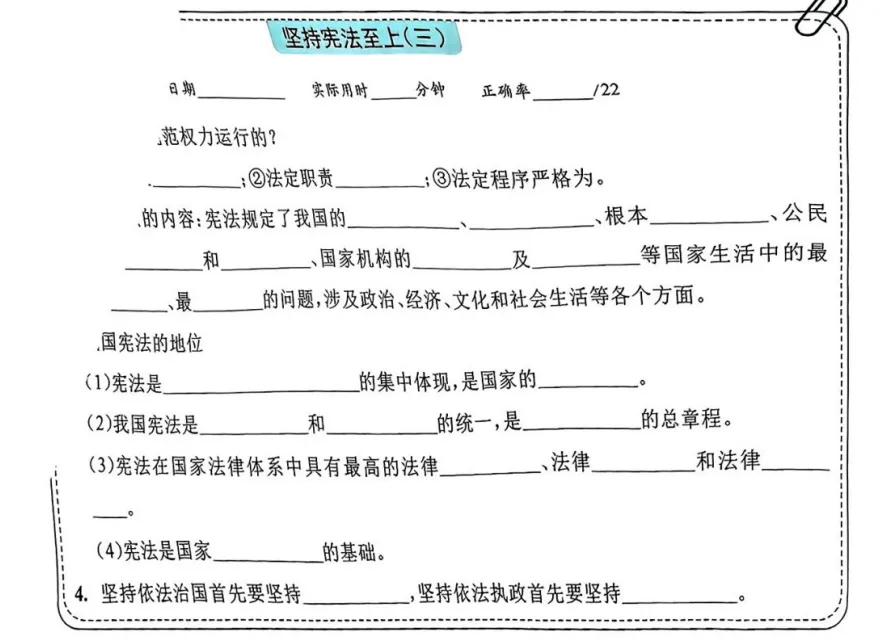 坚持宪法至上(三)
日期________ 实际用时____分钟 正确率______/22
范权力运行的?
________;②法定职责________;③法定程序严格为。
的内容:宪法规定了我国的__________、____________、根本__________、公民
_______和________、国家机构的_________及__________等国家生活中的最
_____、最______的问题,涉及政治、经济、文化和社会生活等各个方面。
国宪法的地位
(1)宪法是__________________的集中体现,是国家的_________。
(2)我国宪法是__________和__________的统一,是__________的总章程。
(3)宪法在国家法律体系中具有最高的法律_________、法律_________和法律______
___。
(4)宪法是国家__________的基础。
4. 坚持依法治国首先要坚持__________,坚持依法执政首先要坚持__________。